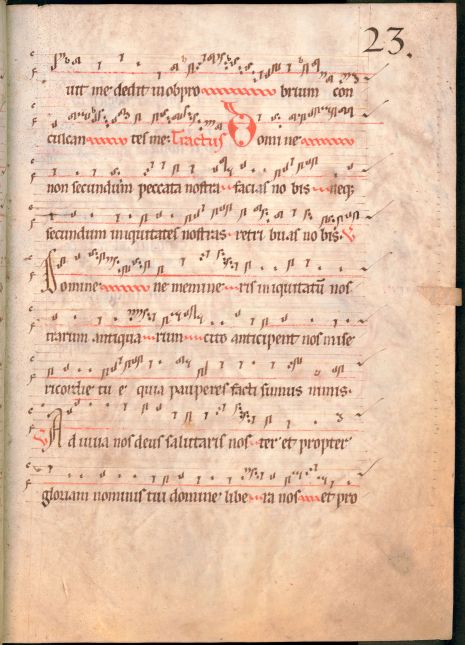 23.
uit me dedit in obpro brium con
culcan tes me. Tractus Domi ne
non secundum peccata nostra facias no bis neq;
secundum iniquitates nostras retri buas no bis. V
Domine ne memine ris iniquitatū nos
trarum antiqua rum cito anticipent nos mise
ricordie tu e quia pauperes facti sumus nimis.
V Ad iuua nos deus salutaris nos ter et propter
gloriam nominis tui domine libe ra nos et pro